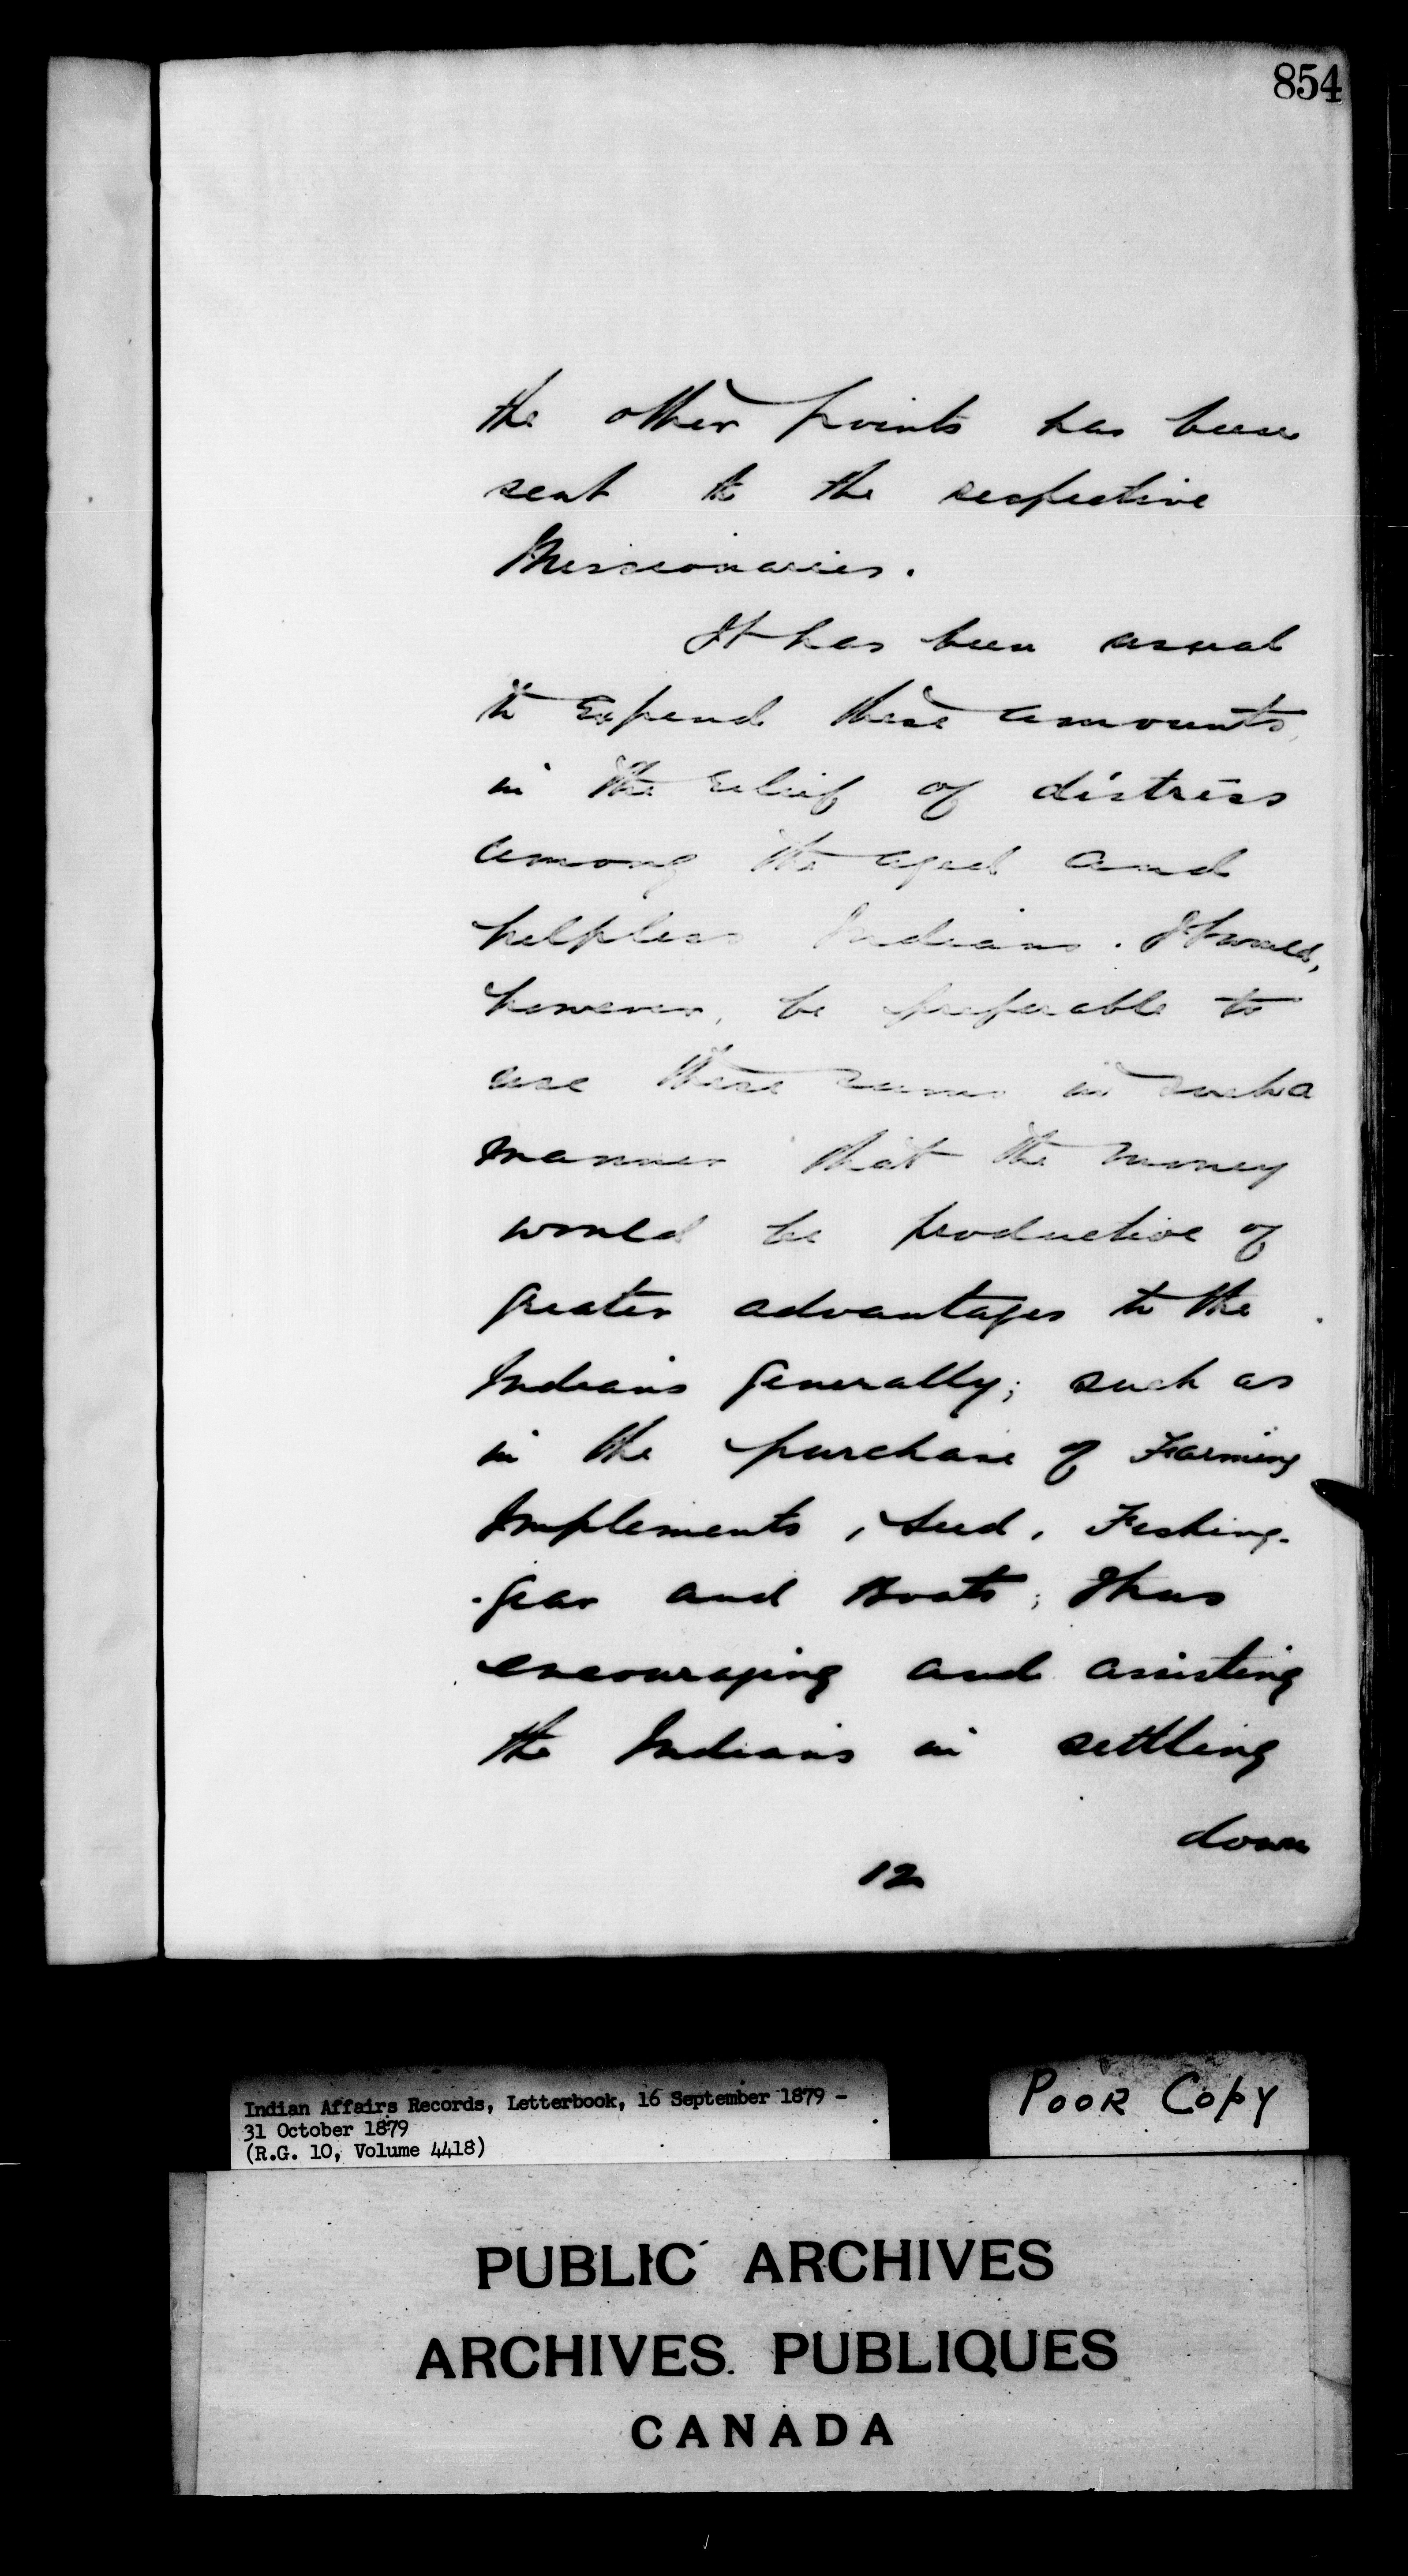 854
the other points has been
sent to the respective
Missionaries.
It has been usual
to expend these amounts
in the relief of distress
among the aged and
helpless Indians. It would,
however, be preferable to
use these sums in such a
manner that the money
would be productive of
greater advantages to the
Indians generally; such as
in the purchase of Farming
Implements, Seed, Fishing-
-gear and Boats; thus
encouraging and assisting
the Indians in settling
down
12
Indian Affairs Records, Letterbook, 16 September 1879 -
31 October 1879
(R.G. 10, Volume 4418)
POOR COPY
PUBLIC ARCHIVES
ARCHIVES PUBLIQUES
CANADA